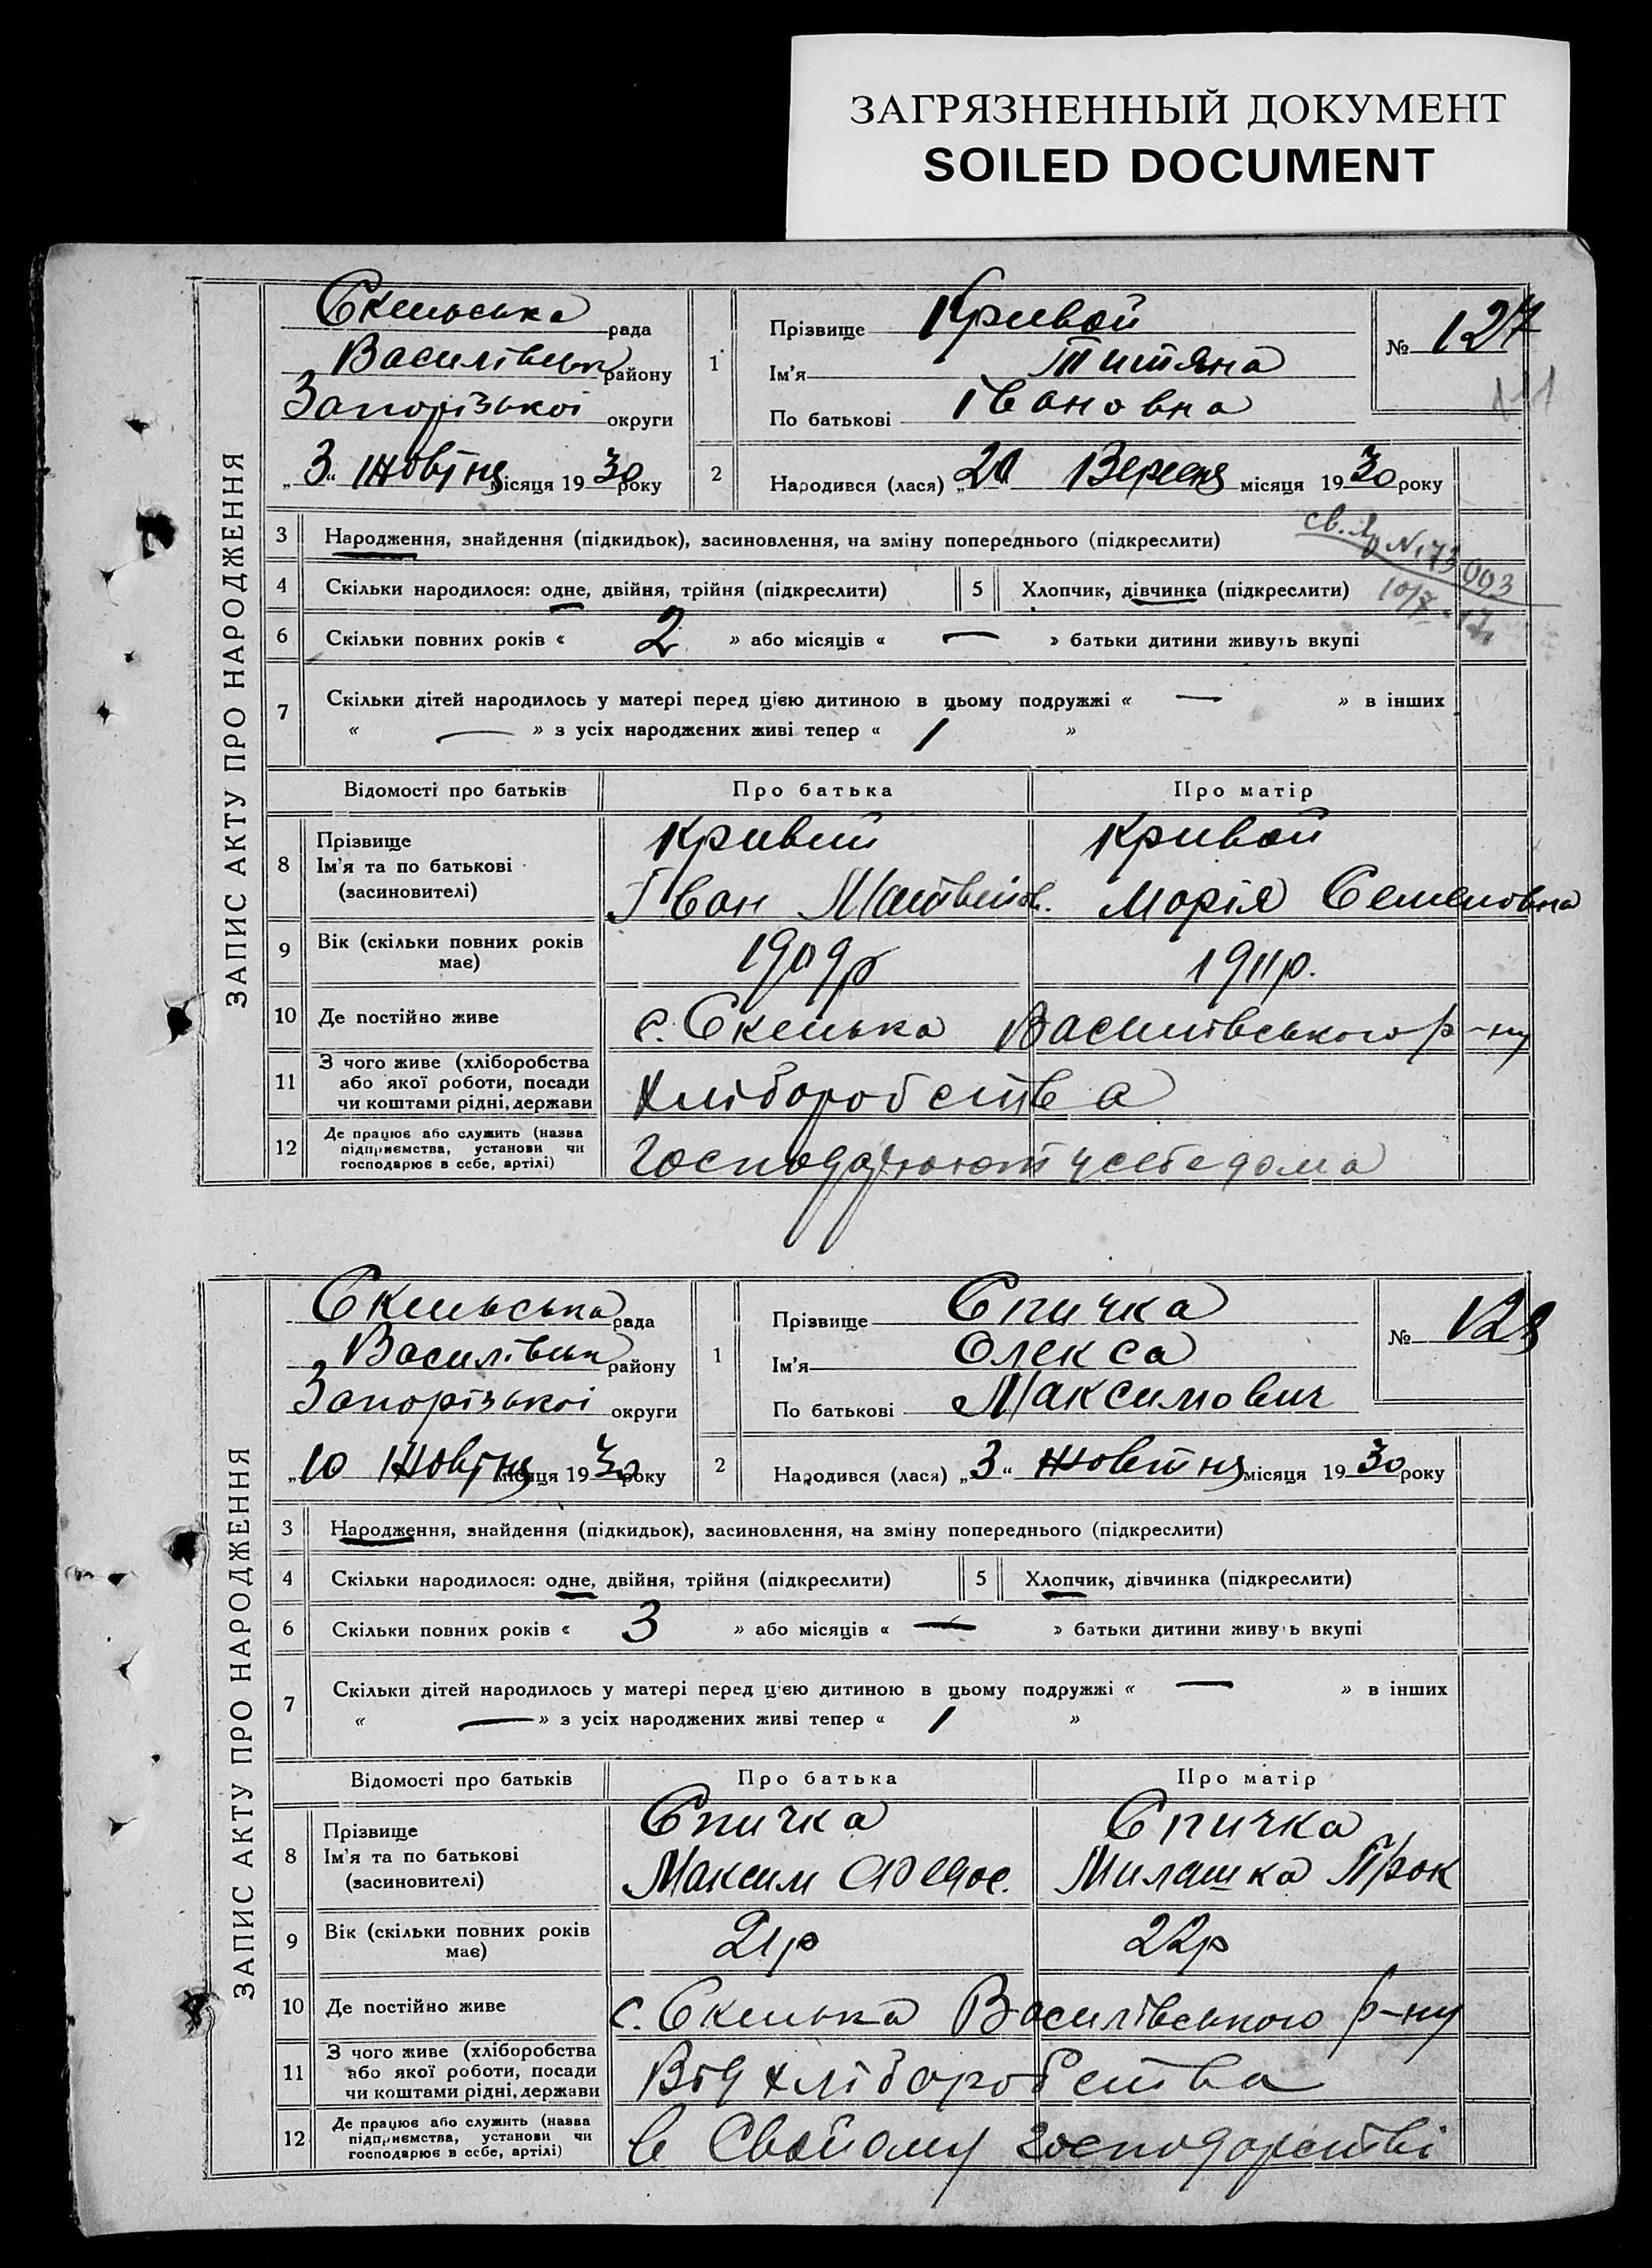 ЗАГРЯЗНЕННЫЙ ДОКУМЕНТ
SOILED DOCUMENT
ЗАПИС АКТУ ПРО НАРОДЖЕННЯ
Скельська рада
Василівськ району
Запорізької округи
„3“ Жовтня місяця 1930 року
1
Прізвище Кривой
Ім'я Титяна
По батькові Івановна
№ 127
2
Народився (лася) „20 Вересня місяця 1930 року
3 Народження, знайдення (підкидьок), засиновлення, на зміну попереднього (підкреслити)
4 Скільки народилося: одне, двійня, трійня (підкреслити) 5 Хлопчик, дівчинка (підкреслити)
6 Скільки повних років « 2 » або місяців « — » батьки дитини живуть вкупі
7 Скільки дітей народилось у матері перед цією дитиною в цьому подружжі « — » в інших
« — » з усіх народжених живі тепер « 1 »
Відомості про батьків Про батька Про матір
8 Прізвище
Ім'я та по батькові
(засиновителі)
Кривий Кривой
Іван Матвійов. Марія Семеновна
9 Вік (скільки повних років має) 1909р 1911р.
10 Де постійно живе с. Скелька Василівського р-ну
11 З чого живе (хліборобства
або якої роботи, посади
чи коштами рідні, держави
Хліборобства
12 Де працює або служить (назва
підприємства, установи чи
господарює в себе, артілі)
господарюют у себе дома
ЗАПИС АКТУ ПРО НАРОДЖЕННЯ
Скельська рада
Василівськ району
Запорізької округи
„10 Жовтня місяця 1930 року
1
Прізвище Спичка
Ім'я Олекса
По батькові Максимович
№ 128
2
Народився (лася) „3“ Жовтня місяця 1930 року
3 Народження, знайдення (підкидьок), засиновлення, на зміну попереднього (підкреслити)
4 Скільки народилося: одне, двійня, трійня (підкреслити) 5 Хлопчик, дівчинка (підкреслити)
6 Скільки повних років « 3 » або місяців « — » батьки дитини живуть вкупі
7 Скільки дітей народилось у матері перед цією дитиною в цьому подружжі « — » в інших
« — » з усіх народжених живі тепер « 1 »
Відомості про батьків Про батька Про матір
8 Прізвище
Ім'я та по батькові
(засиновителі)
Спичка Спичка
Максим Федос. Милашка Прок
9 Вік (скільки повних років має) 21р 22р
10 Де постійно живе с. Скелька Василівського р-ну
11 З чого живе (хліборобства
або якої роботи, посади
чи коштами рідні, держави
Від хліборобства
12 Де працює або служить (назва
підприємства, установи чи
господарює в себе, артілі)
в Свойому господарстві